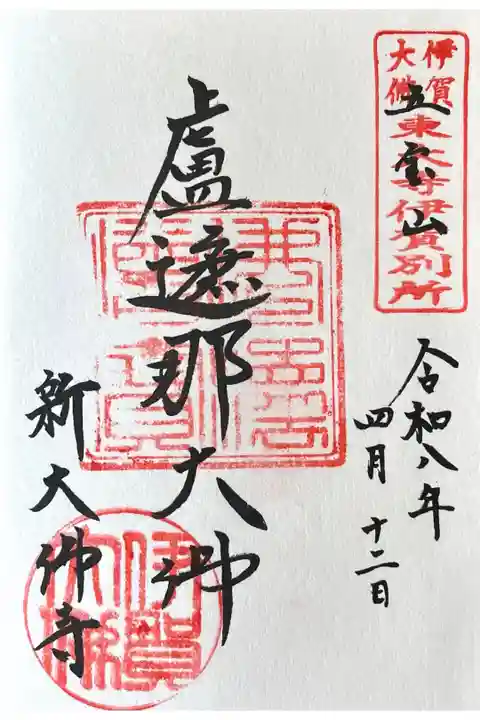 伊賀
大佛
東大寺伊賀別所
五宝山
令和八年
四月十二日
盧遮那大佛
新大佛寺
伊賀
大佛